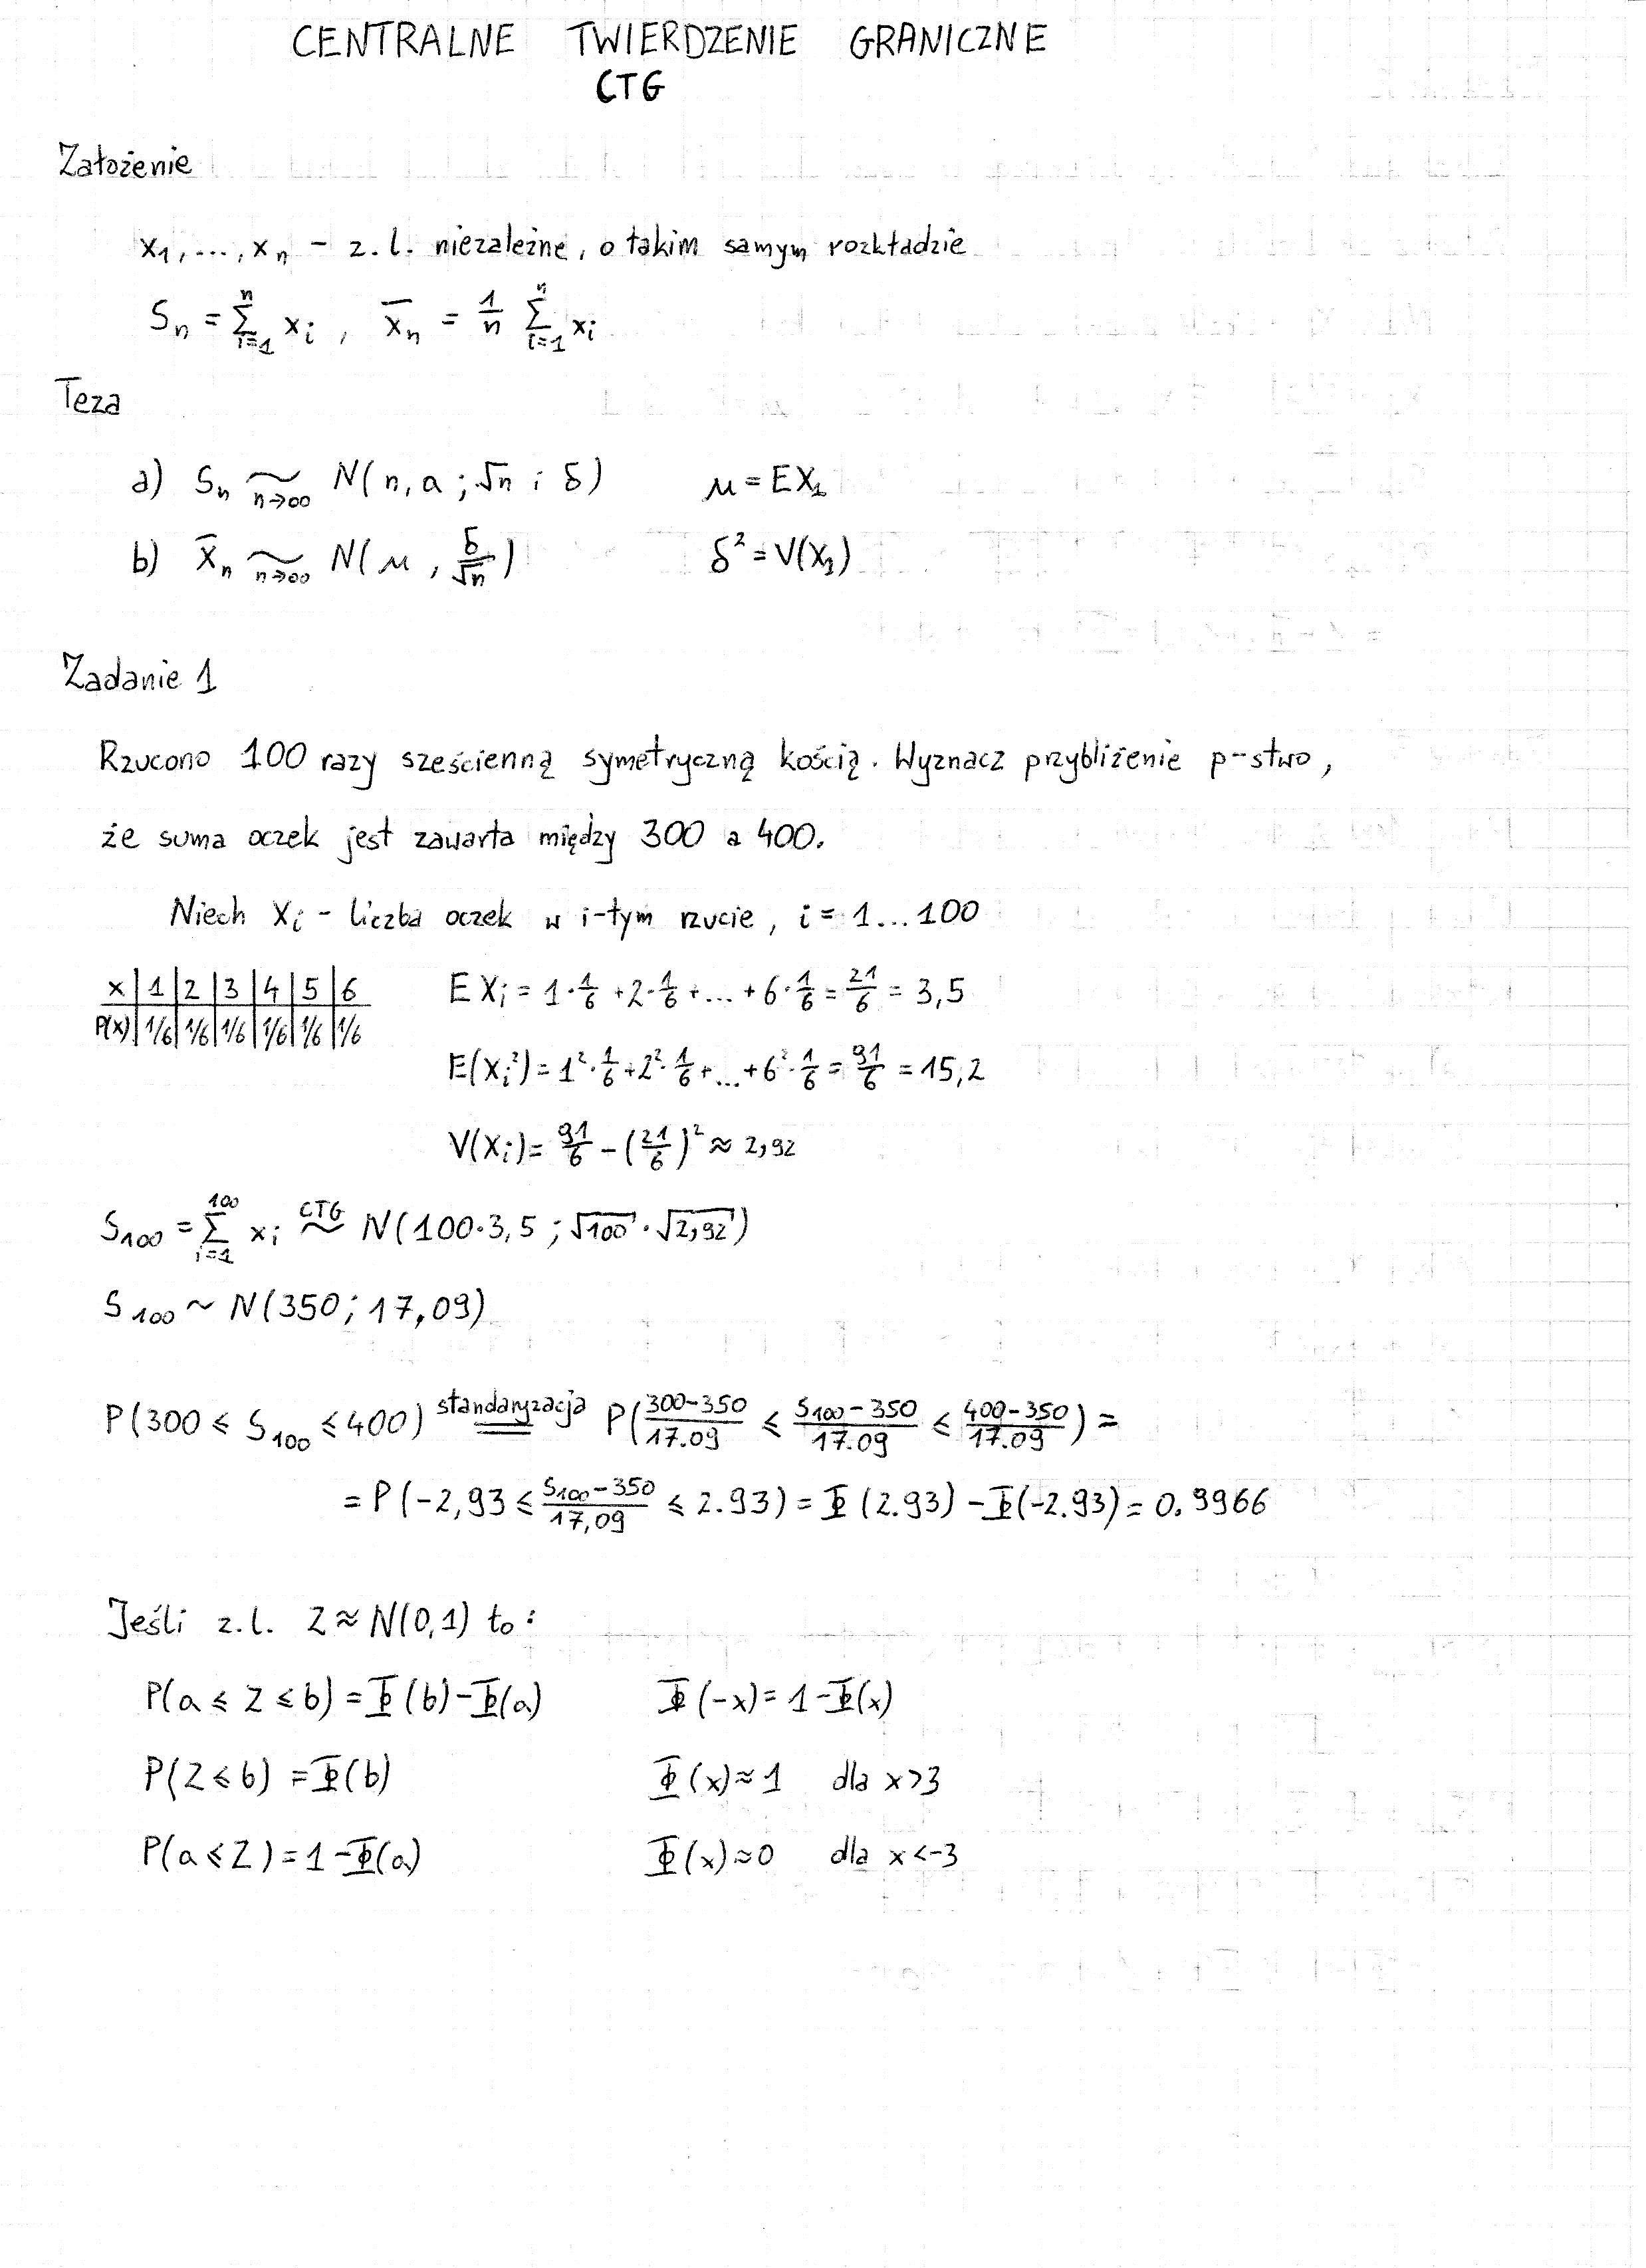 CENTRALNE TWIERDZENIE GRANICZNE
CTG
Założenie
x₁, ..., xₙ - z.l. niezależne, o takim samym rozkładzie
Sₙ = Σᵢ₌₁ⁿ xᵢ , x̄ₙ = 1/n Σᵢ₌₁ⁿ xᵢ
Teza
a) Sₙ ~ₙ→∞ N(n, a ; √n ; δ) μ = EX₁
b) x̄ₙ ~ₙ→∞ N(μ , δ/√n) δ² = V(X₁)
Zadanie 1
Rzucono 100 razy sześcienną symetryczną kością. Wyznacz przybliżenie p-stwo,
że suma oczek jest zawarta między 300 a 400.
Niech Xᵢ - liczba oczek w i-tym rzucie, i = 1...100
x | 1 | 2 | 3 | 4 | 5 | 6
P(x) | 1/6 | 1/6 | 1/6 | 1/6 | 1/6 | 1/6
EXᵢ = 1·1/6 + 2·1/6 + ... + 6·1/6 = 21/6 = 3,5
E(Xᵢ²) = 1²·1/6 + 2²·1/6 + ... + 6²·1/6 = 91/6 = 15,2
V(Xᵢ) = 91/6 - (21/6)² ≈ 2,92
S₁₀₀ = Σᵢ₌₁¹⁰⁰ xᵢ ~ CTG N(100·3,5 ; √100 · √2,92)
S₁₀₀ ~ N(350; 17,09)
P(300 ≤ S₁₀₀ ≤ 400) standaryzacja = P(300-350/17.09 ≤ S₁₀₀-350/17.09 ≤ 400-350/17.09) =
= P(-2,93 ≤ S₁₀₀-350/17,09 ≤ 2.93) = Φ(2.93) - Φ(-2.93) = 0.9966
Jeśli z.l. Z ≈ N(0,1) to:
P(a ≤ Z ≤ b) = Φ(b) - Φ(a) Φ(-x) = 1 - Φ(x)
P(Z ≤ b) = Φ(b) Φ(x) ≈ 1 dla x > 3
P(a ≤ Z) = 1 - Φ(a) Φ(x) ≈ 0 dla x < -3